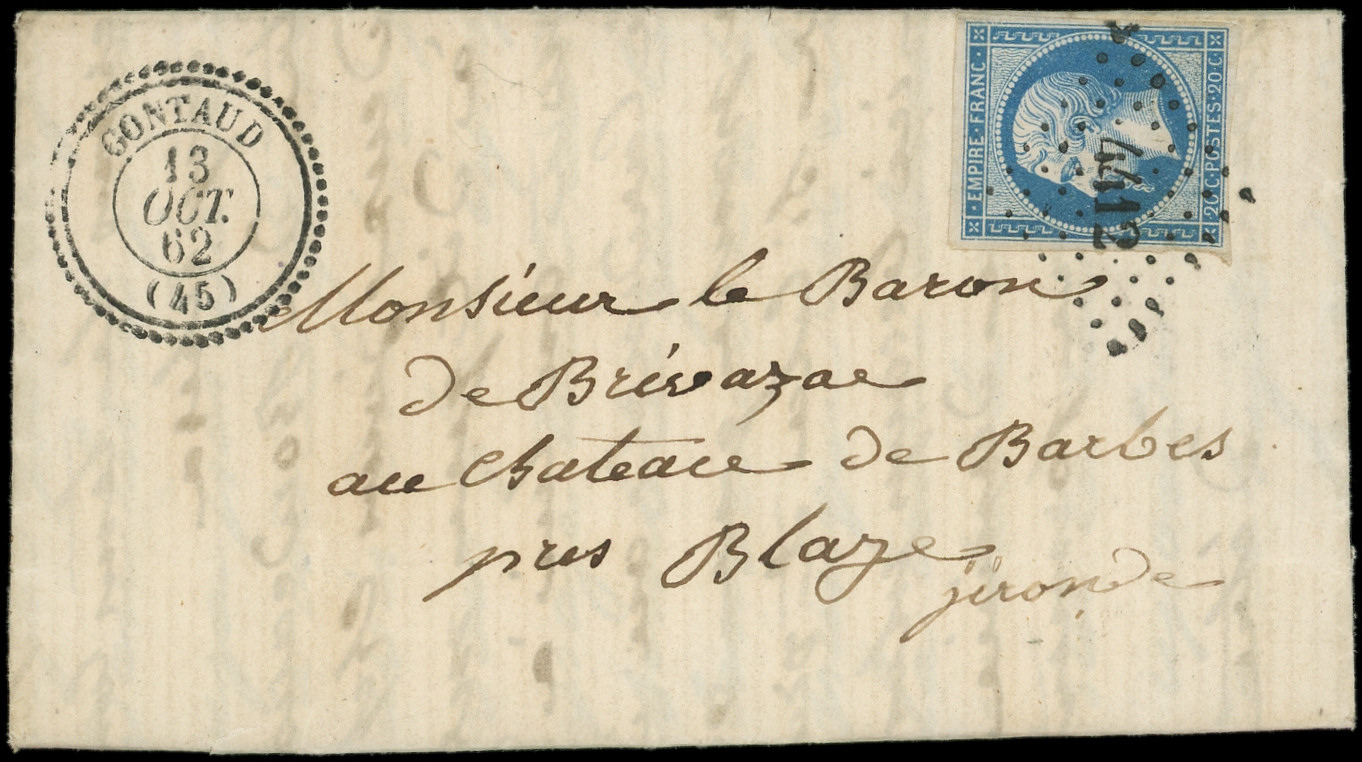 GONTAUD
13
OCT.
62
(45)
EMPIRE · FRANC ·
20 · C · POSTES · 20 · C ·
4112
Monsieur le Baron
de Brivazac
au Chateau de Barbes
près Blaye
jironde